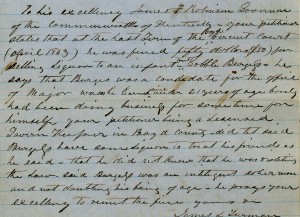 To his excellency James F Robinson Governor
of the Commonwealth of Kentucky your petitioner
states that at the Last Term of the Boyd Circuit Court
(April 1863) he was fined fifty dollars ($50) for
selling liquor to an infant Burgess he
says that Burgess was a candidate for the office
of Major was he 21 years of age bodily
had been doing business for some time for
himself your petitioner being a licensed
Tavern Keeper in Boyd County did let said
Burgess have some liquor is that his friends as
he said that he did not know that he was violating
the Law said Burgess was an intelligent
and not doubting his being of age he prays your
excellency to remit the fine
James L Furman